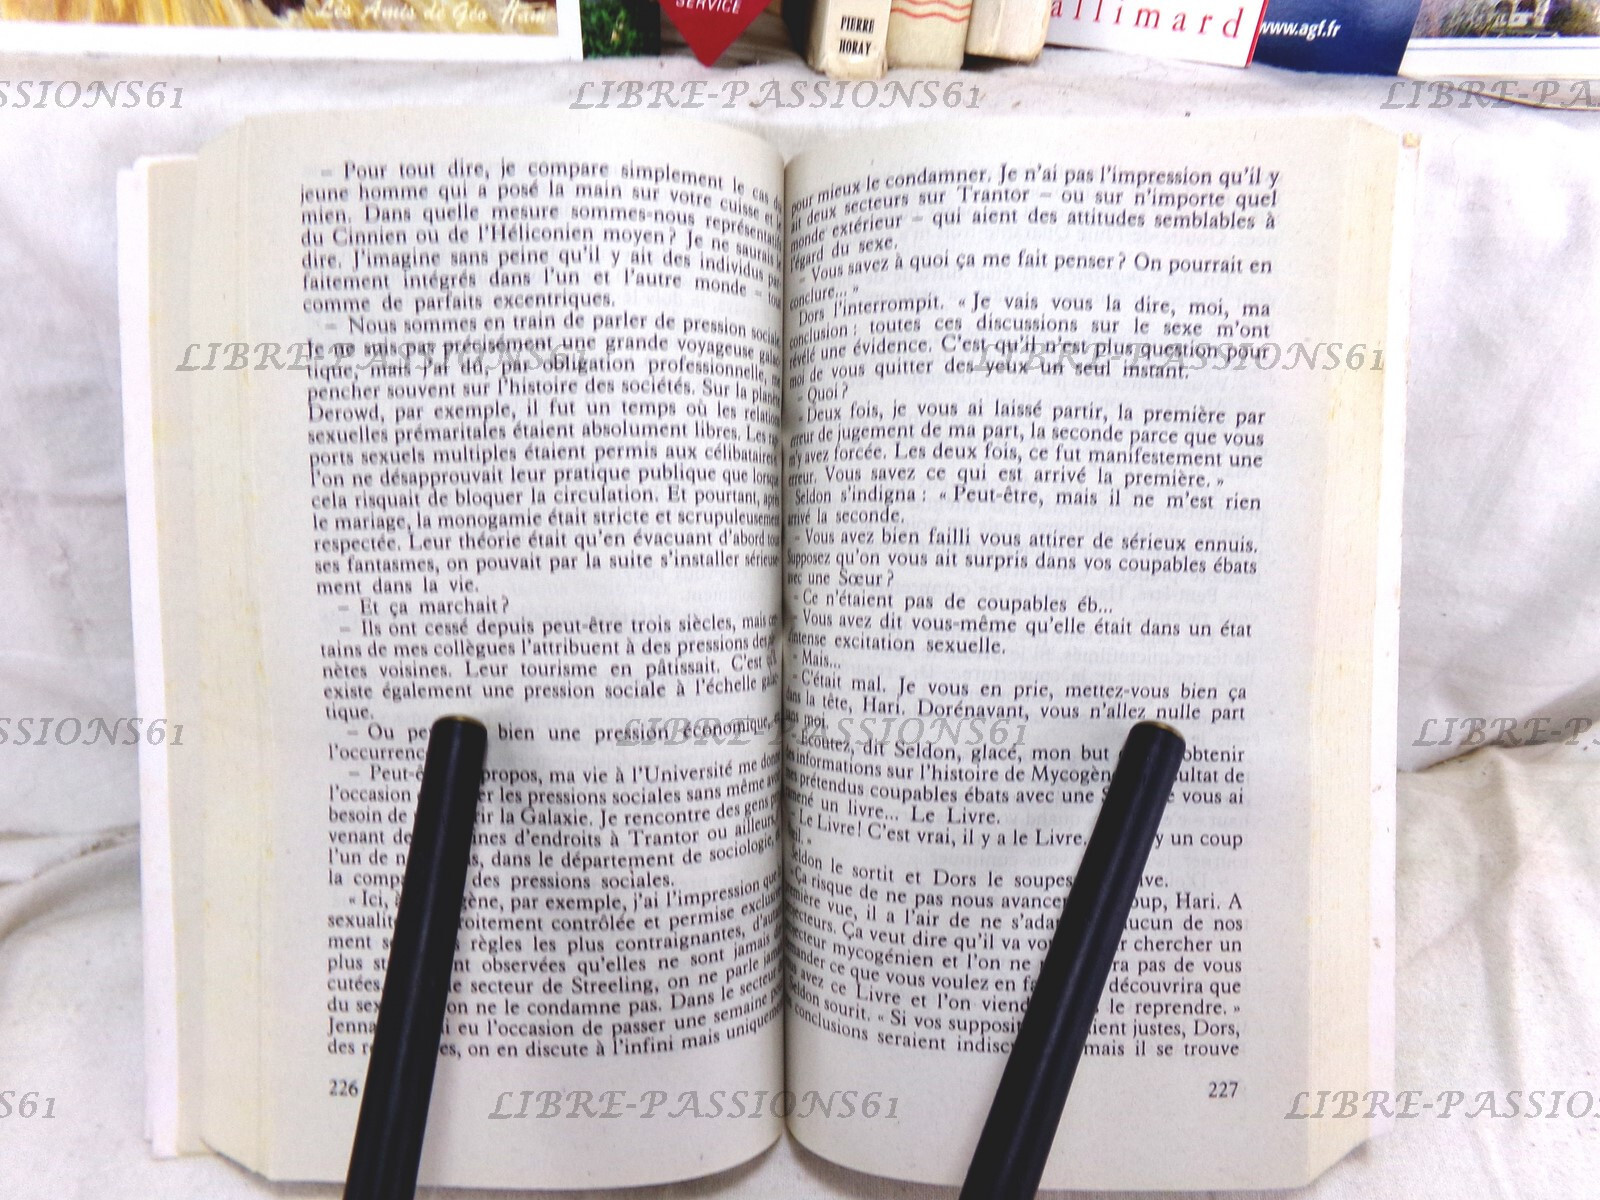 Les Amis de Géo Ham
SERVICE
PIERRE
HORAY
allimard
www.agf.fr
LIBRE-PASSIONS61
– Pour tout dire, je compare simplement le cas du
jeune homme qui a posé la main sur votre cuisse et le
mien. Dans quelle mesure sommes-nous représentatifs
du Cinnien ou de l'Héliconien moyen? Je ne saurais le
dire. J'imagine sans peine qu'il y ait des individus par-
faitement intégrés dans l'un et l'autre monde – tout
comme de parfaits excentriques.
– Nous sommes en train de parler de pression sociale.
Je ne suis pas précisément une grande voyageuse galac-
tique, mais j'ai dû, par obligation professionnelle, me
pencher souvent sur l'histoire des sociétés. Sur la planète
Derowd, par exemple, il fut un temps où les relations
sexuelles prémaritales étaient absolument libres. Les rap-
ports sexuels multiples étaient permis aux célibataires
l'on ne désapprouvait leur pratique publique que lorsque
cela risquait de bloquer la circulation. Et pourtant, après
le mariage, la monogamie était stricte et scrupuleusement
respectée. Leur théorie était qu'en évacuant d'abord tous
ses fantasmes, on pouvait par la suite s'installer sérieuse-
ment dans la vie.
– Et ça marchait?
– Ils ont cessé depuis peut-être trois siècles, mais cer-
tains de mes collègues l'attribuent à des pressions de
nètes voisines. Leur tourisme en pâtissait. C'est qu'il
existe également une pression sociale à l'échelle galac-
tique.
– Ou bien une pression économique, en
l'occurrenc
– Peut-ê propos, ma vie à l'Université me donne
l'occasion er les pressions sociales sans même avoir
besoin de rir la Galaxie. Je rencontre des gens
venant de ines d'endroits à Trantor ou ailleurs,
l'un de n s, dans le département de sociologie,
la compa des pressions sociales.
« Ici, gène, par exemple, j'ai l'impression que
sexualité roitement contrôlée et permise exclusi
ment s règles les plus contraignantes, d'autant
plus st nt observées qu'elles ne sont jamais dis
cutées. le secteur de Streeling, on ne parle jamais
du sex on ne le condamne pas. Dans le secteur
Jenna i eu l'occasion de passer une semaine
des re es, on en discute à l'infini mais uniquement
226
pour mieux le condamner. Je n'ai pas l'impression qu'il y
ait deux secteurs sur Trantor – ou sur n'importe quel
monde extérieur – qui aient des attitudes semblables à
l'égard du sexe.
– Vous savez à quoi ça me fait penser? On pourrait en
conclure... »
Dors l'interrompit. « Je vais vous la dire, moi, ma
conclusion : toutes ces discussions sur le sexe m'ont
révélé une évidence. C'est qu'il n'est plus question pour
moi de vous quitter des yeux un seul instant.
– Quoi?
– Deux fois, je vous ai laissé partir, la première par
erreur de jugement de ma part, la seconde parce que vous
m'y avez forcée. Les deux fois, ce fut manifestement une
erreur. Vous savez ce qui est arrivé la première. »
Seldon s'indigna : « Peut-être, mais il ne m'est rien
arrivé la seconde.
– Vous avez bien failli vous attirer de sérieux ennuis.
Supposez qu'on vous ait surpris dans vos coupables ébats
avec une Sœur?
– Ce n'étaient pas de coupables éb...
– Vous avez dit vous-même qu'elle était dans un état
d'intense excitation sexuelle.
– Mais...
– C'était mal. Je vous en prie, mettez-vous bien ça
dans la tête, Hari. Dorénavant, vous n'allez nulle part
sans moi.
– Écoutez, dit Seldon, glacé, mon but obtenir
des informations sur l'histoire de Mycogène sultat de
mes prétendus coupables ébats avec une S vous ai
amené un livre... Le Livre.
– Le Livre! C'est vrai, il y a le Livre. y un coup
d'œil. »
Seldon le sortit et Dors le soupes ive.
– Ça risque de ne pas nous avancer oup, Hari. A
première vue, il a l'air de ne s'adap aucun de nos
projecteurs. Ça veut dire qu'il va vou r chercher un
projecteur mycogénien et l'on ne ra pas de vous
demander ce que vous voulez en fa découvrira que
vous avez ce Livre et l'on viend le reprendre. »
Seldon sourit. « Si vos supposit ient justes, Dors,
conclusions seraient indisc mais il se trouve
227